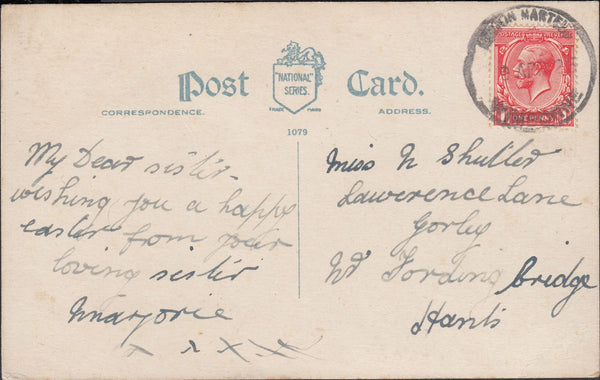 Post Card.
"NATIONAL"
SERIES.
TRADE MARK
CORRESPONDENCE.
ADDRESS.
1079
POSTAGE REVENUE
ONE PENNY
MARTEL
My Dear sister
wishing you a happy
easter from your
loving sister
Marjorie
x x x x x
Miss N Shutler
Lawerence Lane
Gorley
Nr Fordingbridge
Hants